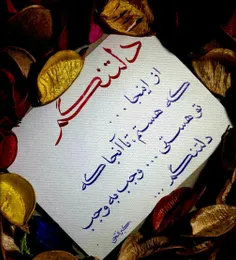 دلتنگم
از اینجا ...
که هستم، تا آنجا که
تو هستی ... وجب به وجب
دلتنگم ...